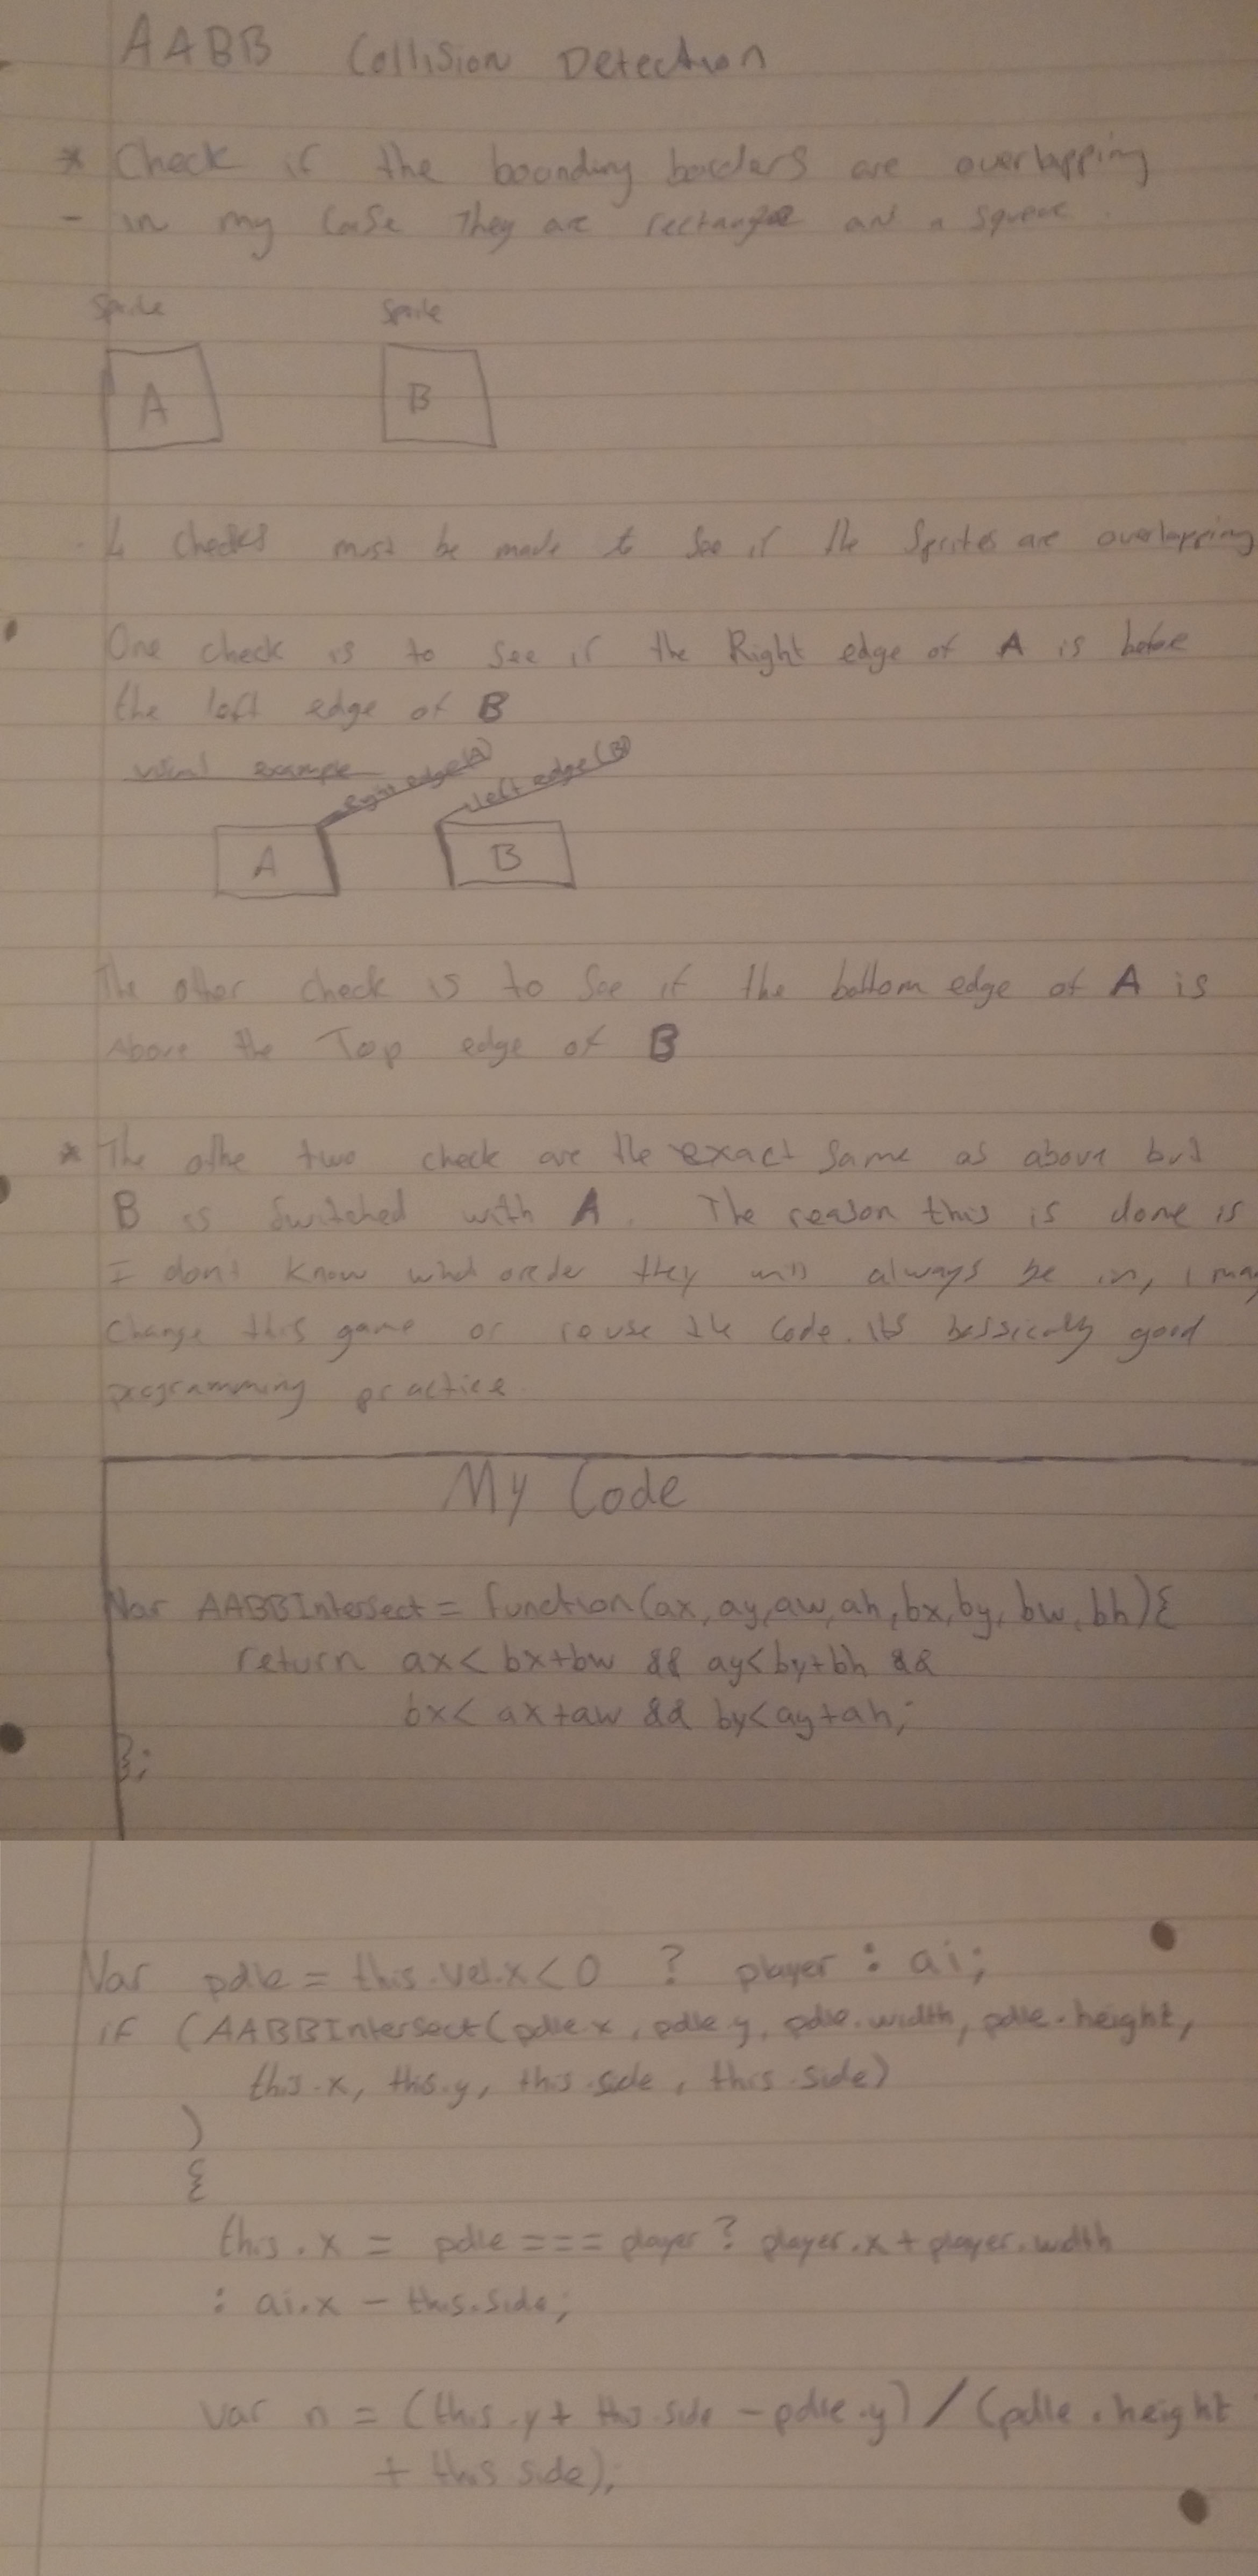 AABB Collision Detection
* Check if the bounding borders are overlapping
- in my case they are rectangle and a square.
Sprite Sprite
A B
4 checks must be made to see if the Sprites are overlapping
One check is to see if the Right edge of A is before
the left edge of B
visual example
right edge(A) left edge(B)
A B
The other check is to see if the bottom edge of A is
above the Top edge of B
* The othe two check are the exact same as above but
B is switched with A. The reason this is done is
I dont know what order they will always be in, i may
change this game or reuse the code. its bassically good
programming practice.
My Code
Var AABBIntersect = function(ax, ay, aw, ah, bx, by, bw, bh){
return ax < bx+bw && ay<by+bh &&
bx< ax+aw && by<ay+ah;
};
Var pdle = this.vel.x<0 ? player : ai;
if (AABBIntersect(pdle.x, pdle.y, pdle.width, pdle.height,
this.x, this.y, this.side, this.side)
)
{
this.x = pdle === player ? player.x + player.width
: ai.x - this.side;
var n = (this.y + this.side - pdle.y) / (pdle.height
+ this side);